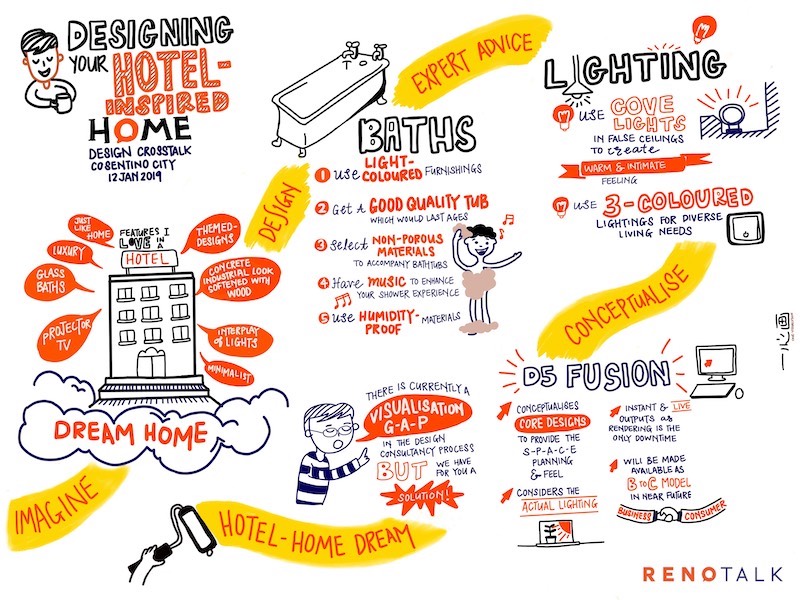 DESIGNING
YOUR HOTEL-
INSPIRED
HOME
DESIGN CROSSTALK
COSENTINO CITY
12 JAN 2019
EXPERT ADVICE
BATHS
1 USE LIGHT-
COLOURED FURNISHINGS
2 GET A GOOD QUALITY TUB
WHICH WOULD LAST AGES
3 SELECT NON-POROUS
MATERIALS
TO ACCOMPANY BATHTUBS
4 HAVE MUSIC TO ENHANCE
YOUR SHOWER EXPERIENCE
5 USE HUMIDITY-
PROOF MATERIALS
LIGHTING
USE COVE
LIGHTS
IN FALSE CEILINGS
TO CREATE
WARM & INTIMATE
FEELING
USE 3-COLOURED
LIGHTINGS FOR DIVERSE
LIVING NEEDS
DESIGN
FEATURES I
LOVE IN A
HOTEL
JUST
LIKE HOME
LUXURY
GLASS
BATHS
PROJECTOR
TV
THEMED-
DESIGNS
CONCRETE
INDUSTRIAL LOOK
SOFTENED WITH
WOOD
INTERPLAY
OF LIGHTS
MINIMALIST
DREAM HOME
IMAGINE
HOTEL-HOME DREAM
THERE IS CURRENTLY A
VISUALISATION
G-A-P
IN THE DESIGN
CONSULTANCY PROCESS
BUT WE HAVE
FOR YOU A
SOLUTION!
CONCEPTUALISE
D5 FUSION
CONCEPTUALISES
CORE DESIGNS
TO PROVIDE THE
S-P-A-C-E
PLANNING
& FEEL
CONSIDERS THE
ACTUAL LIGHTING
INSTANT & LIVE
OUTPUTS AS
RENDERING IS THE
ONLY DOWNTIME
WILL BE MADE
AVAILABLE AS
B TO C MODEL
IN NEAR FUTURE
BUSINESS
CONSUMER
一心画
RENOTALK